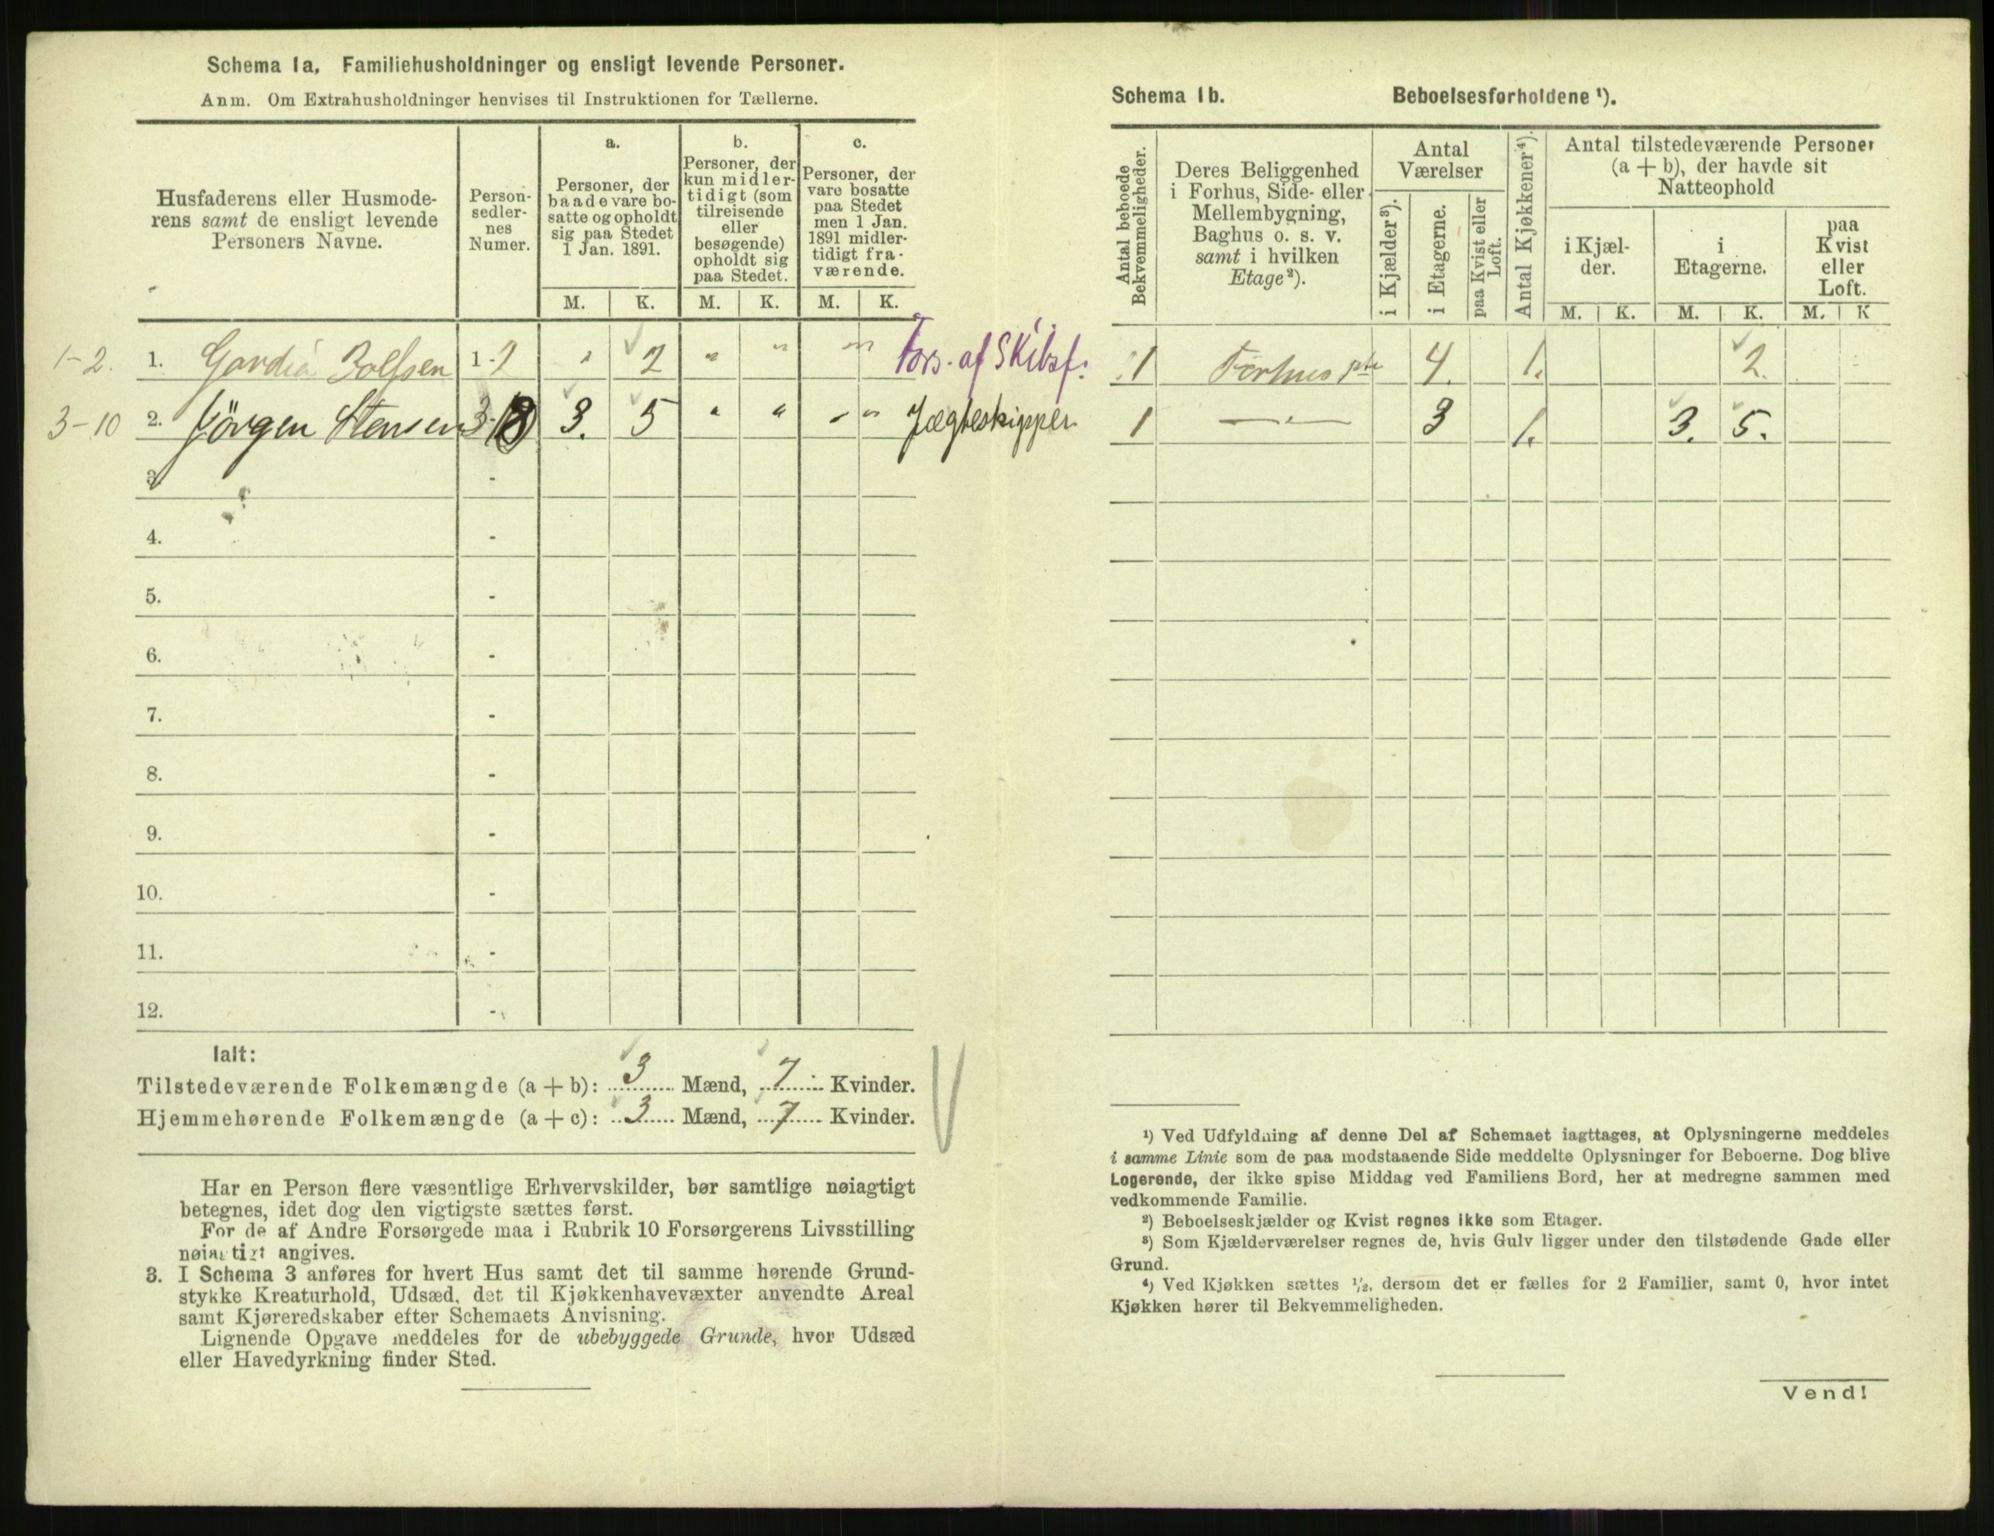 Schema 1a. Familiehusholdninger og ensligt levende Personer.
Anm. Om Extrahusholdninger henvises til Instruktionen for Tællerne.
Husfaderens eller Husmoderens samt de ensligt levende Personers Navne.
Personsedlernes Numer.
a.
Personer, der baade vare bosatte og opholdt sig paa Stedet 1 Jan. 1891.
b.
Personer, der kun midlertidigt (som tilreisende eller besøgende) opholdt sig paa Stedet.
c.
Personer, der vare bosatte paa Stedet men 1 Jan. 1891 midlertidigt fraværende.
M. K. M. K. M. K.
1-2. 1. 1-2 " 2 " " " " Fors. af Skibsf:
3-10 2. Jörgen Stensen 3. 5 " " " " Jægteskipper
3. -
4. -
5. -
6. -
7. -
8. -
9. -
10. -
11. -
12. -
Ialt:
Tilstedeværende Folkemængde (a + b): 3 Mænd, 7 Kvinder.
Hjemmehørende Folkemængde (a + c): 3 Mænd, 7 Kvinder.
Har en Person flere væsentlige Erhvervskilder, bør samtlige nøiagtigt
betegnes, idet dog den vigtigste sættes først.
For de af Andre Forsørgede maa i Rubrik 10 Forsørgerens Livsstilling
nøiagtigt angives.
3. I Schema 3 anføres for hvert Hus samt det til samme hørende Grund-
stykke Kreaturhold, Udsæd, det til Kjøkkenhavevæxter anvendte Areal
samt Kjøreredskaber efter Schemaets Anvisning.
Lignende Opgave meddeles for de ubebyggede Grunde, hvor Udsæd
eller Havedyrkning finder Sted.
Schema 1b. Beboelsesforholdene ¹).
Antal beboede Bekvemmeligheder.
Deres Beliggenhed i Forhus, Side- eller Mellembygning, Baghus o. s. v. samt i hvilken Etage²).
Antal Værelser
i Kjælder³).
i Etagerne.
paa Kvist eller Loft.
Antal Kjøkkener⁴).
Antal tilstedeværende Personer (a + b), der havde sit Natteophold
i Kjælder.
i Etagerne.
paa Kvist eller Loft.
M. K. M. K. M. K
1 Forhus pte 4. 1. 2.
1 — " — 3 1. 3. 5.
¹) Ved Udfyldning af denne Del af Schemaet iagttages, at Oplysningerne meddeles
i samme Linie som de paa modstaaende Side meddelte Oplysninger for Beboerne. Dog blive
Logerende, der ikke spise Middag ved Familiens Bord, her at medregne sammen med
vedkommende Familie.
²) Beboelseskjælder og Kvist regnes ikke som Etager.
³) Som Kjælderværelser regnes de, hvis Gulv ligger under den tilstødende Gade eller
Grund.
⁴) Ved Kjøkken sættes ½, dersom det er fælles for 2 Familier, samt 0, hvor intet
Kjøkken hører til Bekvemmeligheden.
Vend!